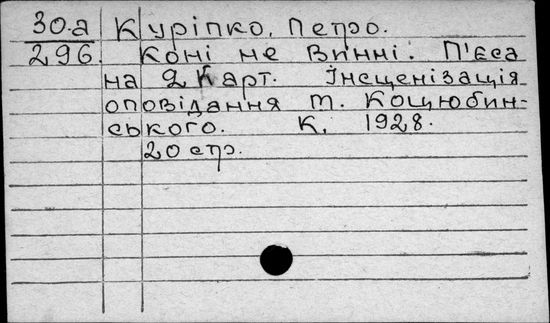 30.a Куріпко, Петро.
296. Коні не винні. П'єса
на 2 карт. Інсценізація
оповідання М. Коцюбин-
ського. К. 1928.
20 стр.